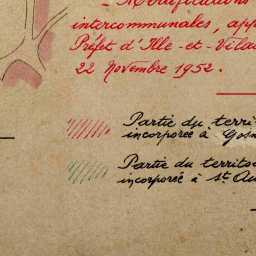 intercommunales, app
Préfet d'Ille-et-Vilai
22 Novembre 1952.
Partie du terri
incorporée à Gosn
Partie du territo
incorporsé à St. Au